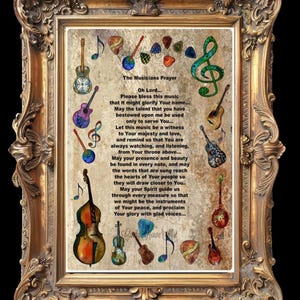 The Musicians Prayer
Oh Lord...
Please bless this music
that it might glorify Your name...
May the talent that you have
bestowed upon me be used
only to serve You...
Let this music be a witness
to Your majesty and love,
and remind us that You are
always watching, and listening,
from Your throne above...
May your presence and beauty
be found in every note, and may
the words that are sung reach
the hearts of Your people so
they will draw closer to You.
May your Spirit guide us
through every measure so that
we might be the instruments
of Your peace, and proclaim
Your glory with glad voices...